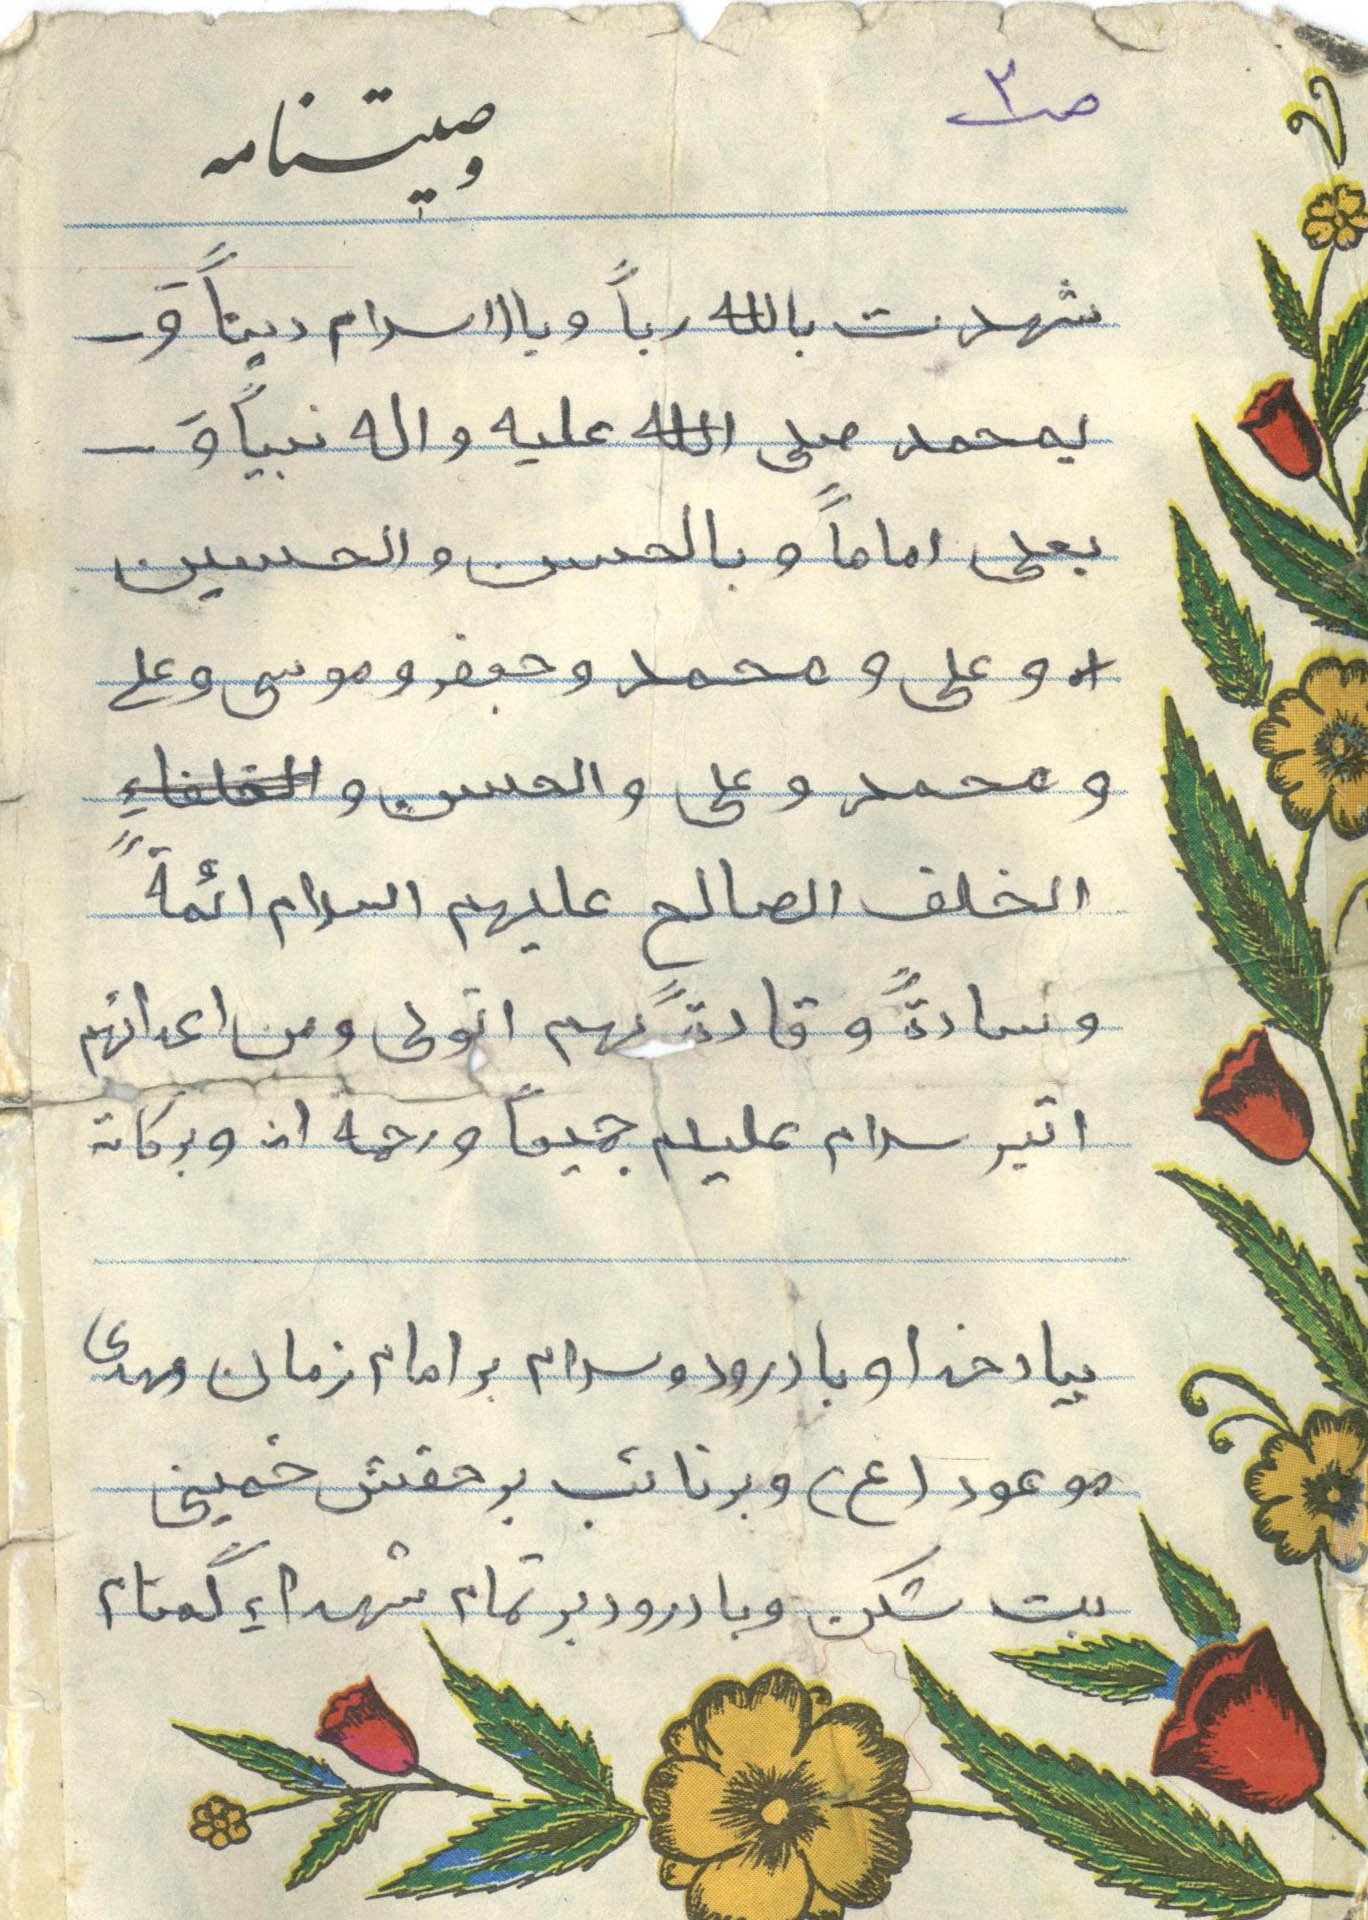 ص۲
وصیتنامه
شهدت بالله رباً و باالسلام دیناً وَ
بمحمد صلی الله علیه و اله نبیاً وَ
بعلی اماماً و بالحسن و الحسین
و علی و محمد و جعفر و موسی و علی
و محمد و علی و الحسن و الخلفاء
الخلف الصالح علیهم السلام ائمةً
و سادةً و قادةً بهم اتولی و من اعدائهم
اتبر سلام علیلم جمیعاً و رحمه اله و برکاته
بیاد خدا و با درود و سلام بر امام زمان مهدی
موعود (عج) و بر نائب بر حقش خمینی
بت شکن و با درود بر تمام شهداءِ گمنام